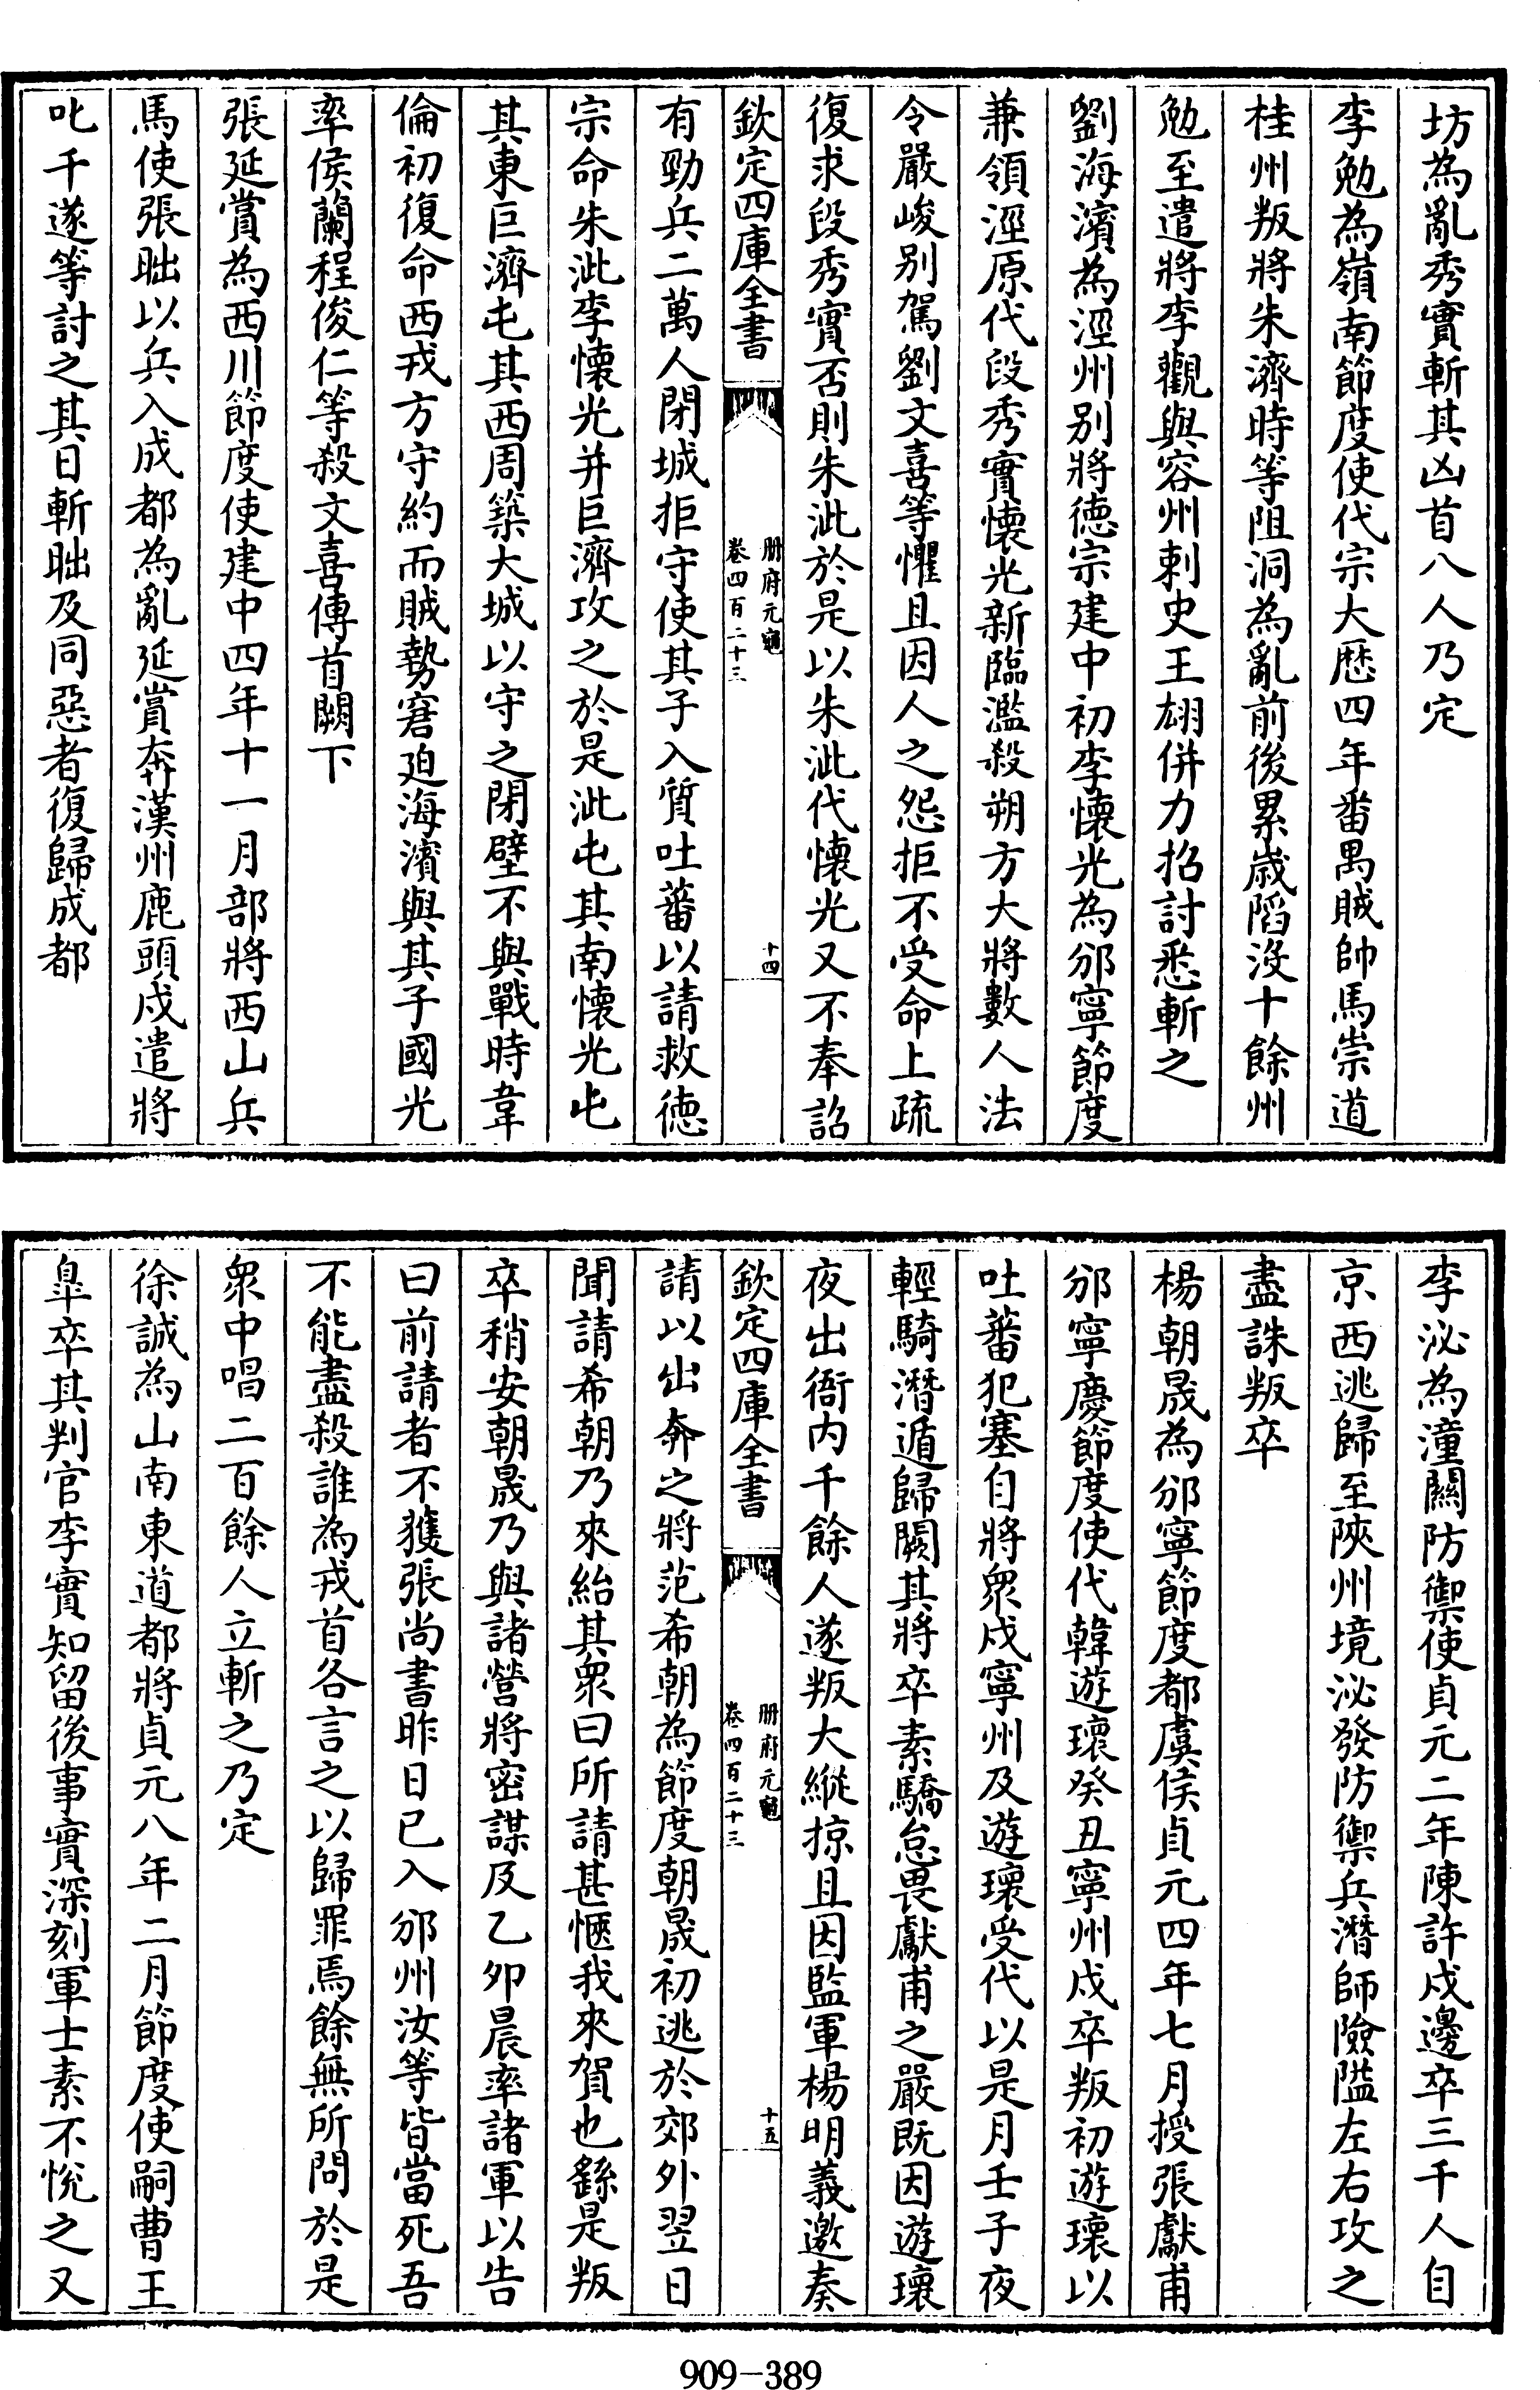 坊為亂秀實斬其凶首八人乃定
李勉為嶺南節度使代宗大歷四年番禺賊帥馬崇道
桂州叛將朱濟時等阻洞為亂前後累歲陷沒十餘州
勉至遣將李觀與容州刺史王翃併力招討悉斬之
劉海濱為涇州別將德宗建中初李懷光為邠寧節度
兼領涇原代段秀實懷光新臨濫殺朔方大將數人法
令嚴峻別駕劉文喜等懼且因人之怨拒不受命上疏
復求段秀實否則朱泚於是以朱泚代懷光又不奉詔
欽定四庫全書
册府元龜
卷四百二十三
十四
有勁兵二萬人閉城拒守使其子入質吐蕃以請救德
宗命朱泚李懷光并巨濟攻之於是泚屯其南懷光屯
其東巨濟屯其西周築大城以守之閉壁不與戰時韋
倫初復命西戎方守約而賊勢窘迫海濱與其子國光
率侯蘭程俊仁等殺文喜傳首闕下
張延賞為西川節度使建中四年十一月部將西山兵
馬使張朏以兵入成都為亂延賞奔漢州鹿頭戍遣將
叱千遂等討之其日斬朏及同惡者復歸成都
李泌為潼關防禦使貞元二年陳許戍邊卒三千人自
京西逃歸至陜州境泌發防禦兵潛師險隘左右攻之
盡誅叛卒
楊朝晟為邠寧節度都虞侯貞元四年七月授張獻甫
邠寧慶節度使代韓遊瓌癸丑寧州戍卒叛初遊瓌以
吐蕃犯塞自將衆戍寧州及遊瓌受代以是月壬子夜
輕騎潛遁歸闕其將卒素驕怠畏獻甫之嚴既因遊瓌
夜出衙内千餘人遂叛大縱掠且因監軍楊明義邀奏
欽定四庫全書
册府元龜
卷四百二十三
十五
請以出奔之將范希朝為節度朝晟初逃於郊外翌日
聞請希朝乃來紿其衆曰所請甚愜我來賀也繇是叛
卒稍安朝晟乃與諸營將密謀及乙卯晨率諸軍以告
曰前請者不獲張尚書昨日已入邠州汝等皆當死吾
不能盡殺誰為戎首各言之以歸罪焉餘無所問於是
衆中唱二百餘人立斬之乃定
徐誠為山南東道都將貞元八年二月節度使嗣曹王
臯卒其判官李實知留後事實深刻軍士素不悅之又
909-389